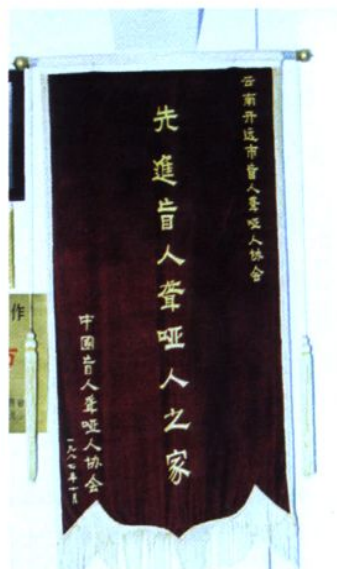 云南开远市盲人聋哑人协会
先進盲人聋哑人之家
中國盲人聋哑人协会
一九八七年十月
作